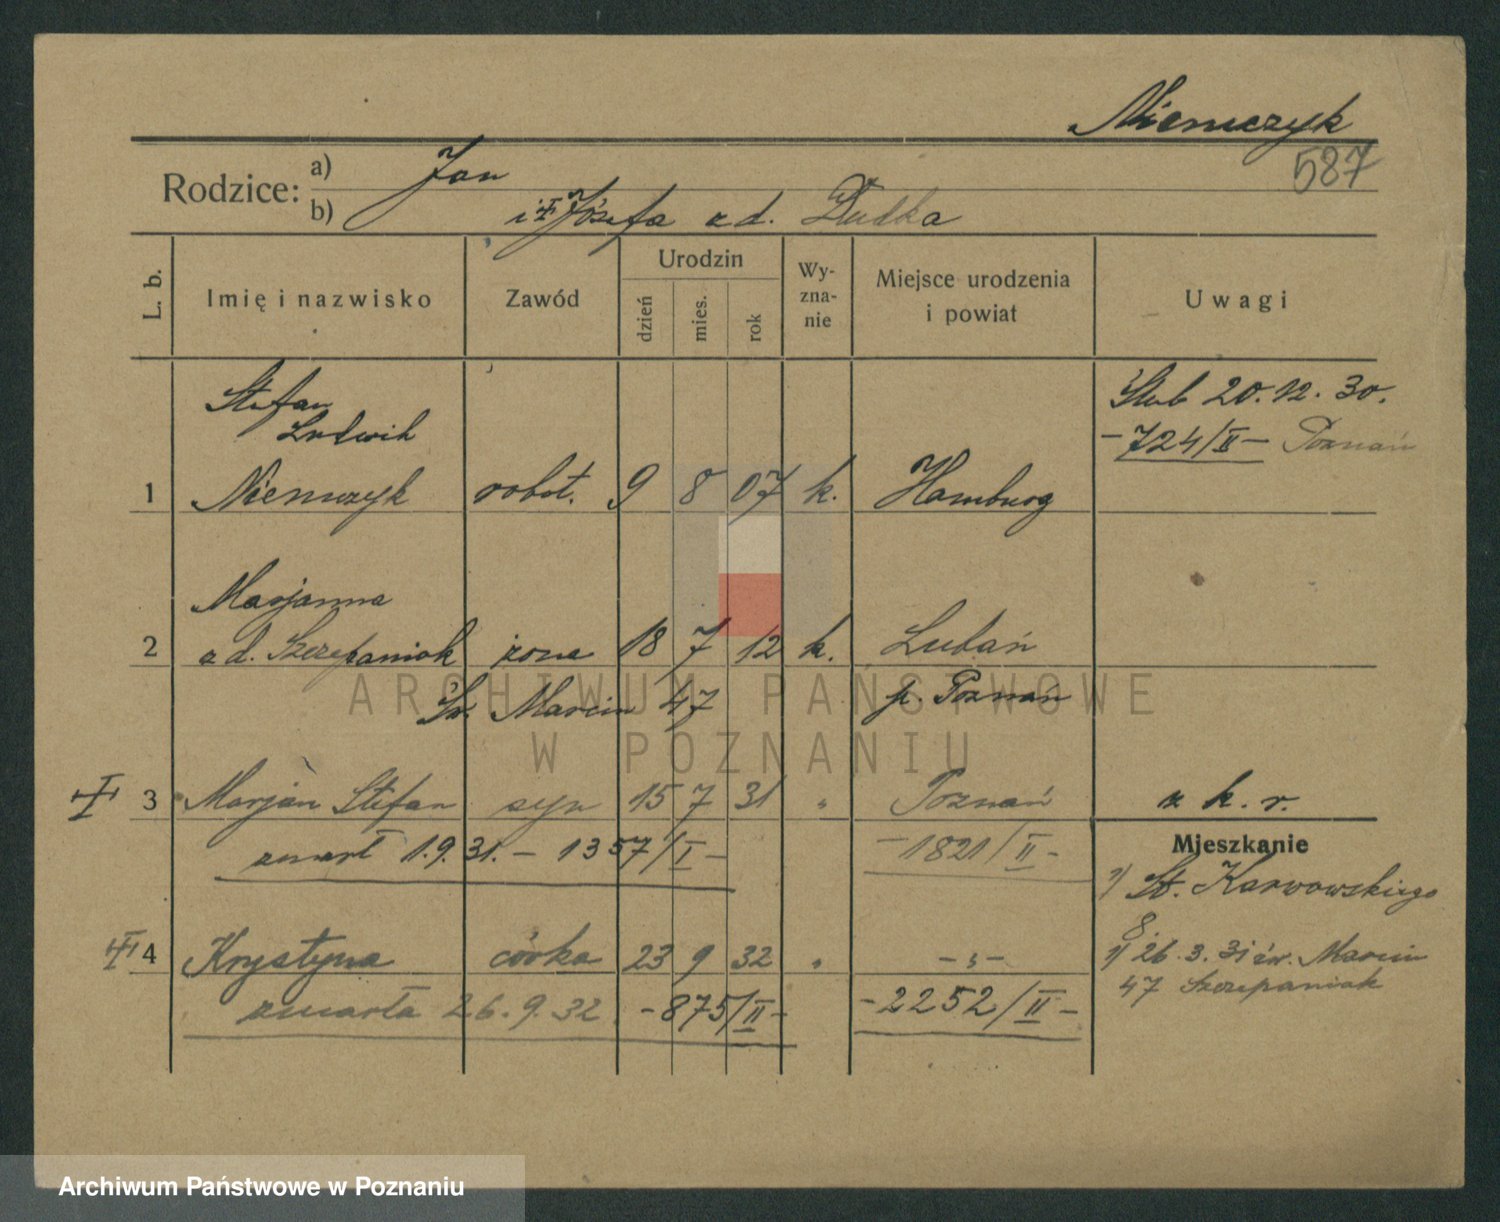 Niemczyk
587
Rodzice: a) Jan
b) i Józefa z d. Dudka
L. b. Imię i nazwisko Zawód Urodzin dzień mies. rok Wy-zna-nie Miejsce urodzenia i powiat Uwagi
Stefan
Ludwik
1 Niemczyk robot. 9 8 07 k. Hamburg
Ślub 20.12.30.
-724/II- Poznań
Marjanna
2 z d. Szczepaniak żona 18 7 12 k. Lubań
Św. Marcin 47 p. Poznań
3 Marjan Stefan syn 15 7 31 " Poznań
z k. r.
zmarł 1.9.31. - 1357/I - -1821/II-
Mieszkanie
2) St. Karwowskiego
8.
4 Krystyna córka 23 9 32 " -"-
1) 26.3.31 św. Marcin
47 Szczepaniak
zmarła 26.9.32. -875/II- -2252/II-
ARCHIWUM PAŃSTWOWE
W POZNANIU
Archiwum Państwowe w Poznaniu